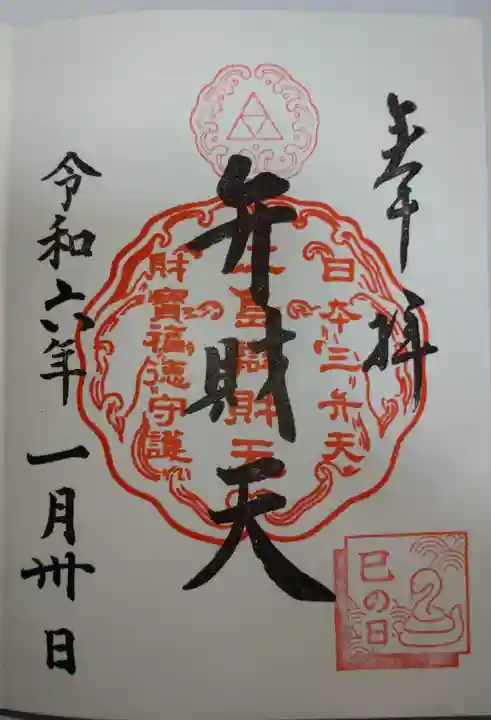 奉拝
日本三弁天
江島辯財天
財寳福徳守護
弁財天
巳の日
令和六年一月卅日